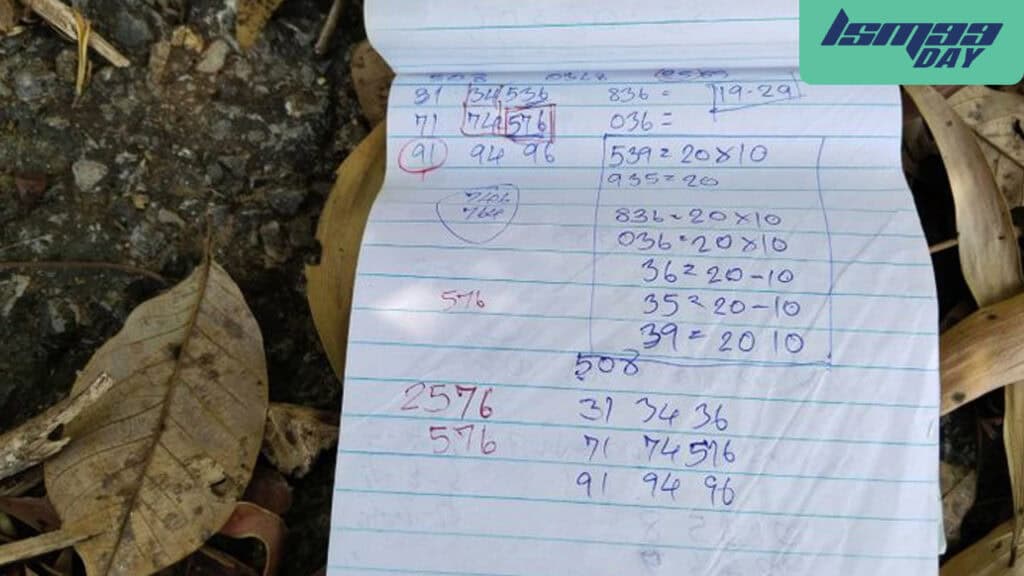 Ismaa
DAY
31 34 536
71 74 576
91 94 96
764
576
2576
576
836 =
19-29
036 =
539 = 20×10
935 = 20
836 = 20×10
036 = 20×10
36 = 20-10
35 = 20-10
39 = 20 10
508
31 34 36
71 74 576
91 94 96